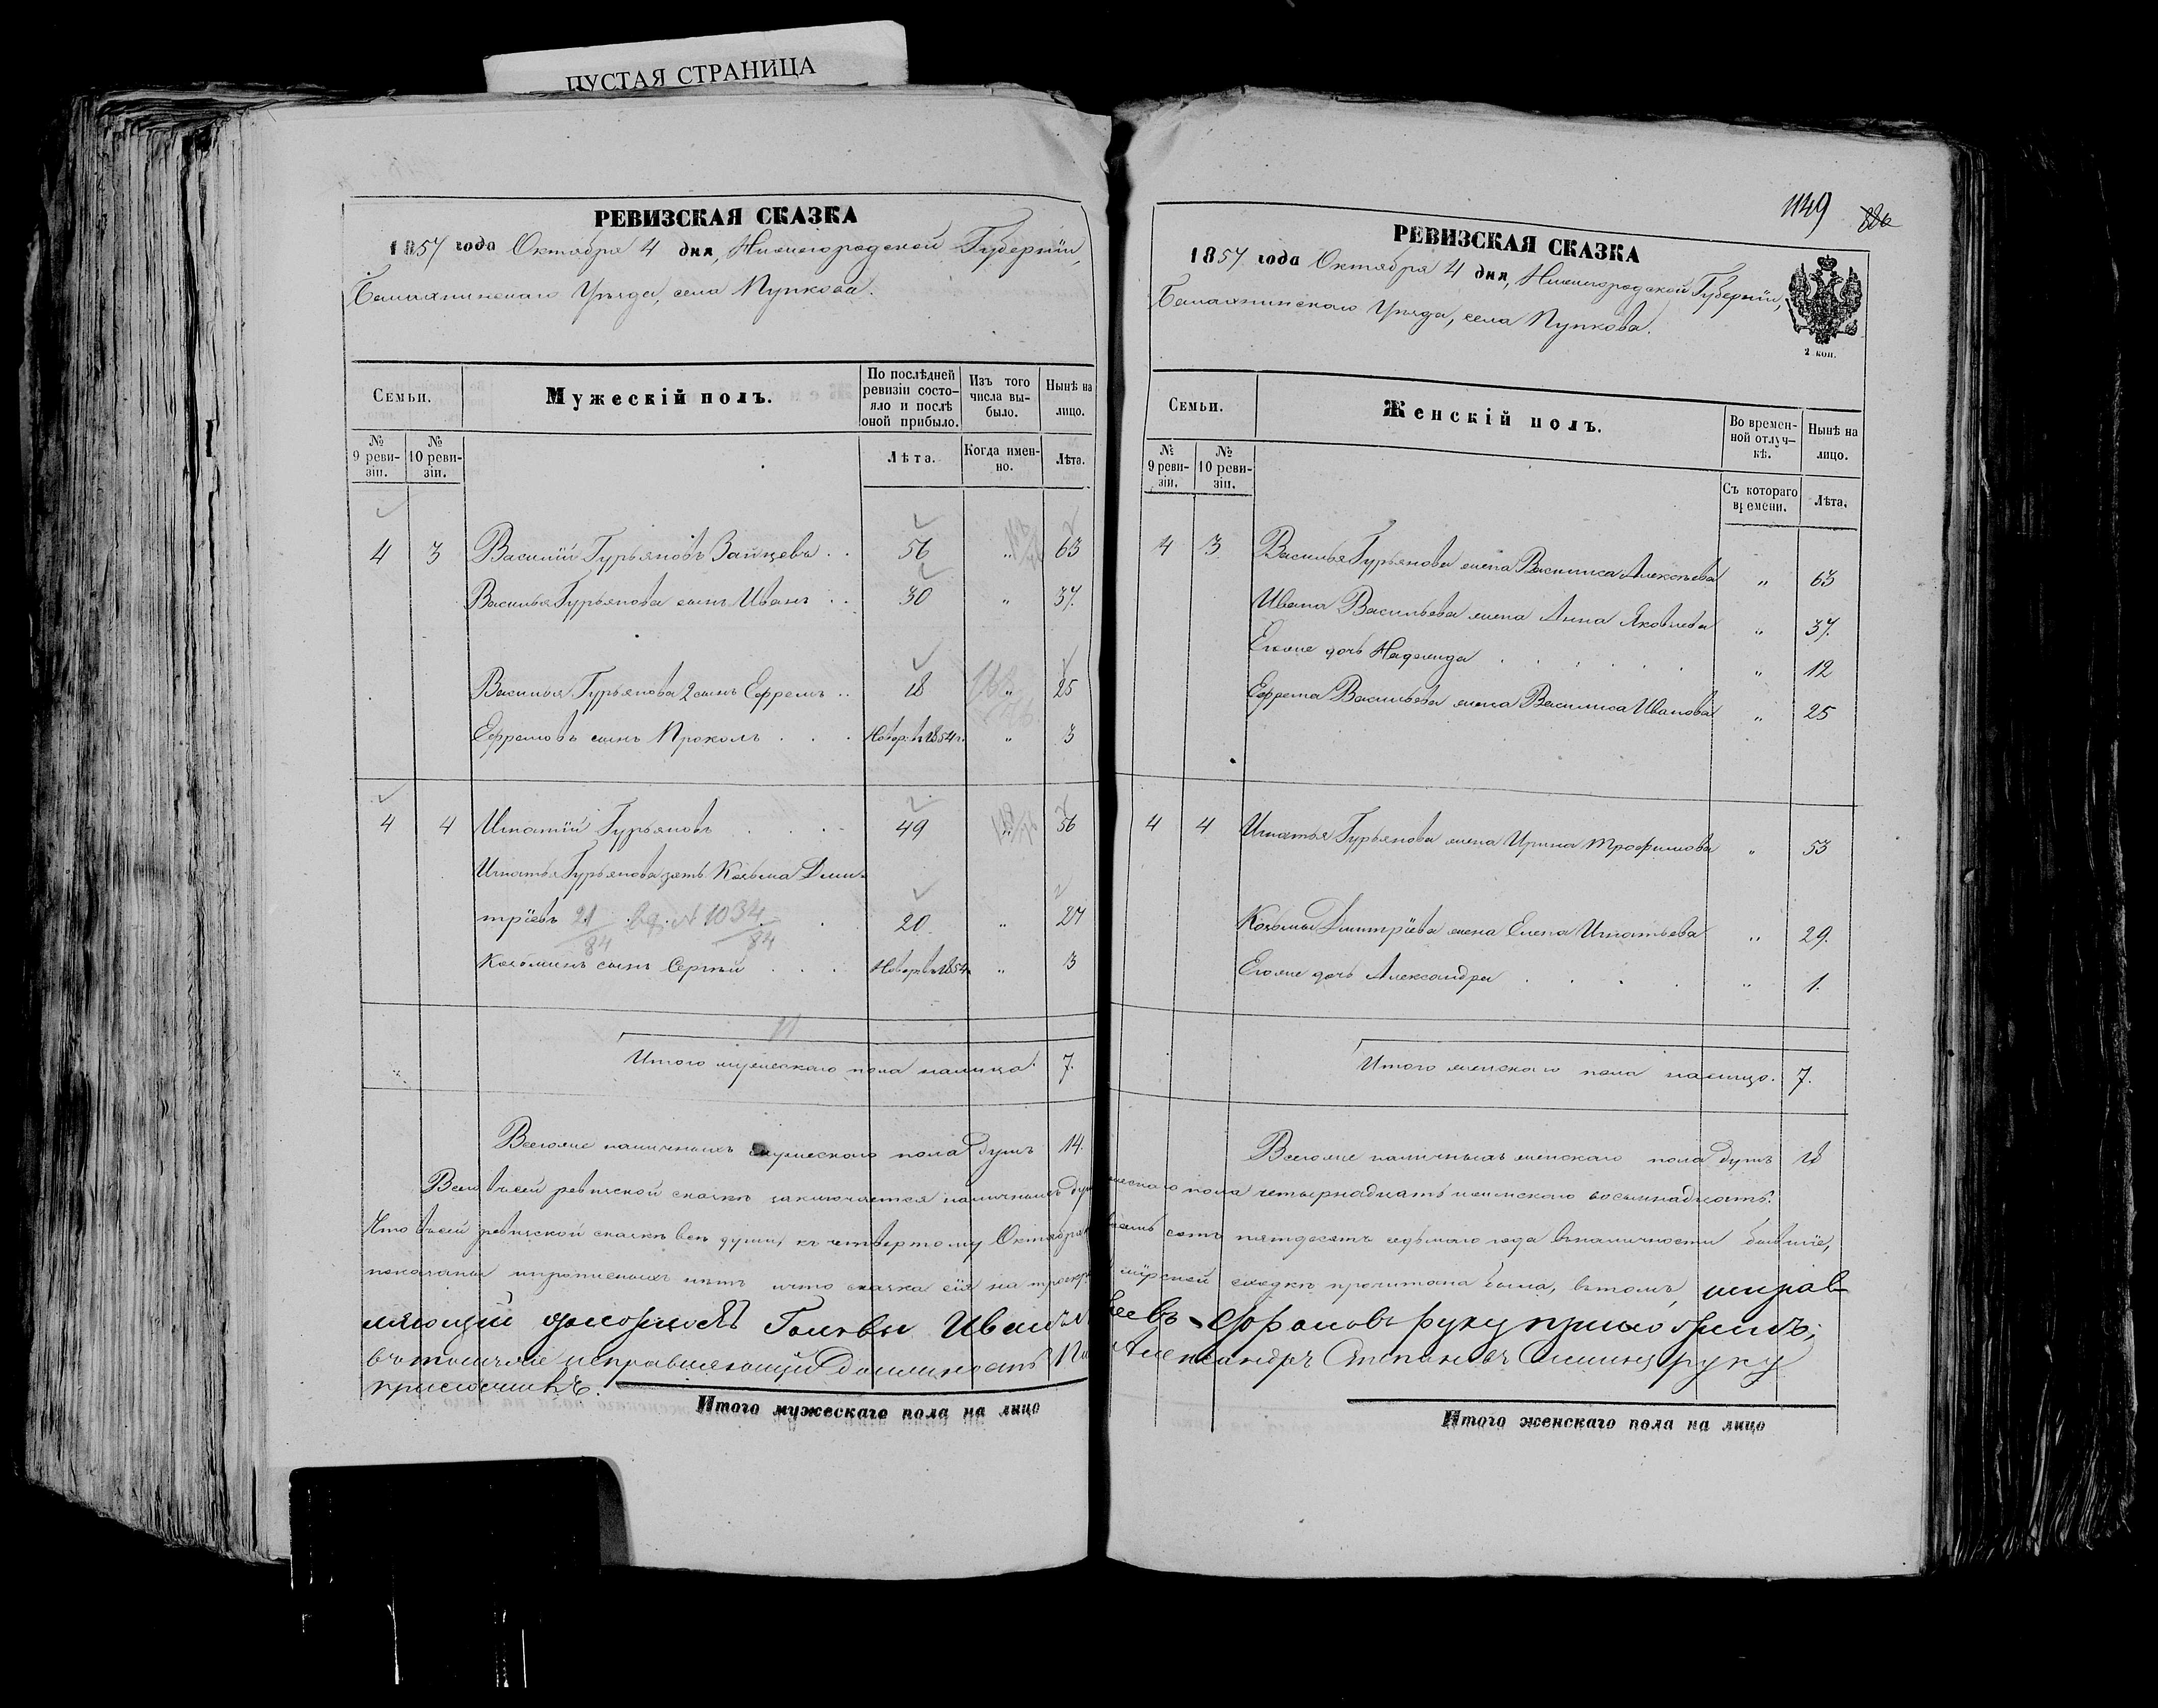 ПУСТАЯ СТРАНИЦА
РЕВИЗСКАЯ СКАЗКА
1857 года Октября 4 дня, Нижегородской Губерніи,
Балахнинскаго Уѣзда, села Пупкова.
Семьи.
Мужескій полъ.
По послѣдней
ревизіи состо-
яло и послѣ
оной прибыло.
Изъ того
числа вы-
было.
Нынѣ на
лицо.
№
9 реви-
зіи.
№
10 реви-
зіи.
Лѣта.
Когда имен-
но.
Лѣта.
4 3 Василій Гурьяновъ Зайцевъ . . 56 „ 63
Василья Гурьянова сынъ Иванъ . . 30 „ 37.
Василья Гурьянова 2 сынъ Ефремъ . . 18 „ 25
Ефремовъ сынъ Прокопъ . . . Новор. въ 1854 г. „ 3
4 4 Игнатій Гурьяновъ . . . . 49 „ 56
Игнатья Гурьянова зять Козьма Дми-
тріевъ 21/84 № 1034/84 20. „ 27
Козьминъ сынъ Сергѣй . . . Новор. въ 1854 „ 3
Итого мужескаго пола налицо. 7.
Всегоже наличныхъ мужескаго пола душъ 14.
РЕВИЗСКАЯ СКАЗКА
1149
1857 года Октября 4 дня, Нижегородской Губерніи,
Балахнинскаго Уѣзда, села Пупкова.
2 коп.
Семьи.
Женскій полъ.
Во времен-
ной отлуч-
кѣ.
Нынѣ на
лицо.
№
9 реви-
зіи.
№
10 реви-
зіи.
Съ котораго
времени.
Лѣта.
4 3 Василья Гурьянова жена Василиса Алексѣева „ 63
Ивана Васильева жена Анна Яковлева „ 37.
Егоже дочь Надежда . . . . . „ 12
Ефрема Васильева жена Василиса Иванова „ 25
4 4 Игнатья Гурьянова жена Ирина Трофимова „ 53
Козьмы Дмитріева жена Елена Игнатьева „ 29.
Егоже дочь Александра . . . . „ 1.
Итого женскаго пола налицо. 7.
Всегоже наличныхъ женскаго пола душъ 18
Всего въ сей ревизской сказкѣ заключается наличныхъ душ пола четырнадцать и женскаго восемнадцать.
Что въ сей ревизской сказкѣ всѣ души, къ четвертому Октября сотъ пятдесятъ седьмаго года въ наличности бывшіе,
показаны и прописныхъ нѣтъ и что сказка сія на мірской сходкѣ прочитана была, въ томъ, исправ
ляющій должность Головы Иван руку приложилъ;
въ томъ же исправляющій должность Александръ Степановъ руку
приложилъ.
Итого мужескаго пола на лицо
Итого женскаго пола на лицо